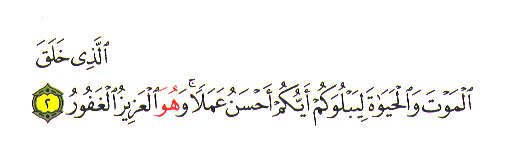 ٱلَّذِى خَلَقَ
ٱلْمَوْتَ وَٱلْحَيَوٰةَ لِيَبْلُوَكُمْ أَيُّكُمْ أَحْسَنُ عَمَلًا ۚ وَهُوَ ٱلْعَزِيزُ ٱلْغَفُورُ ٢